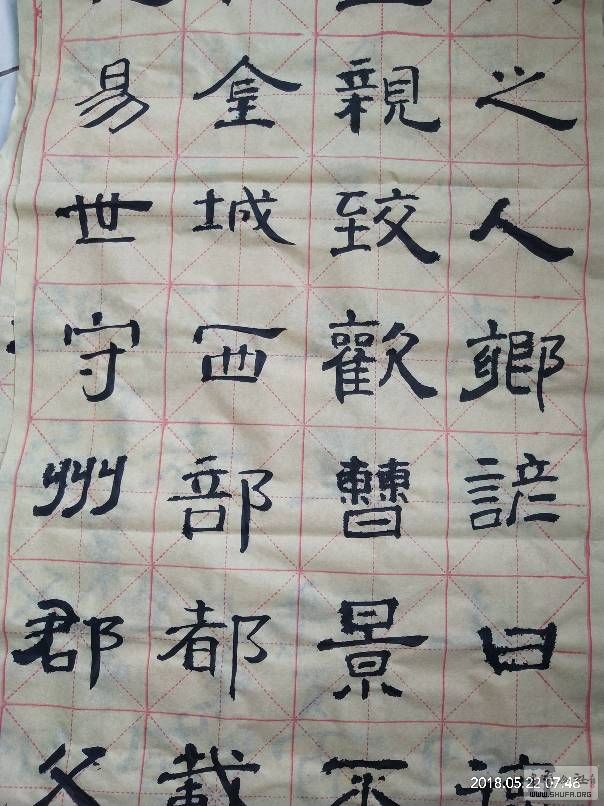 之人鄉諺曰
親致歡曹景不
金城西部都載
易世守州郡父
2018.05.22 07:46
WWW.SHUFA.ORG